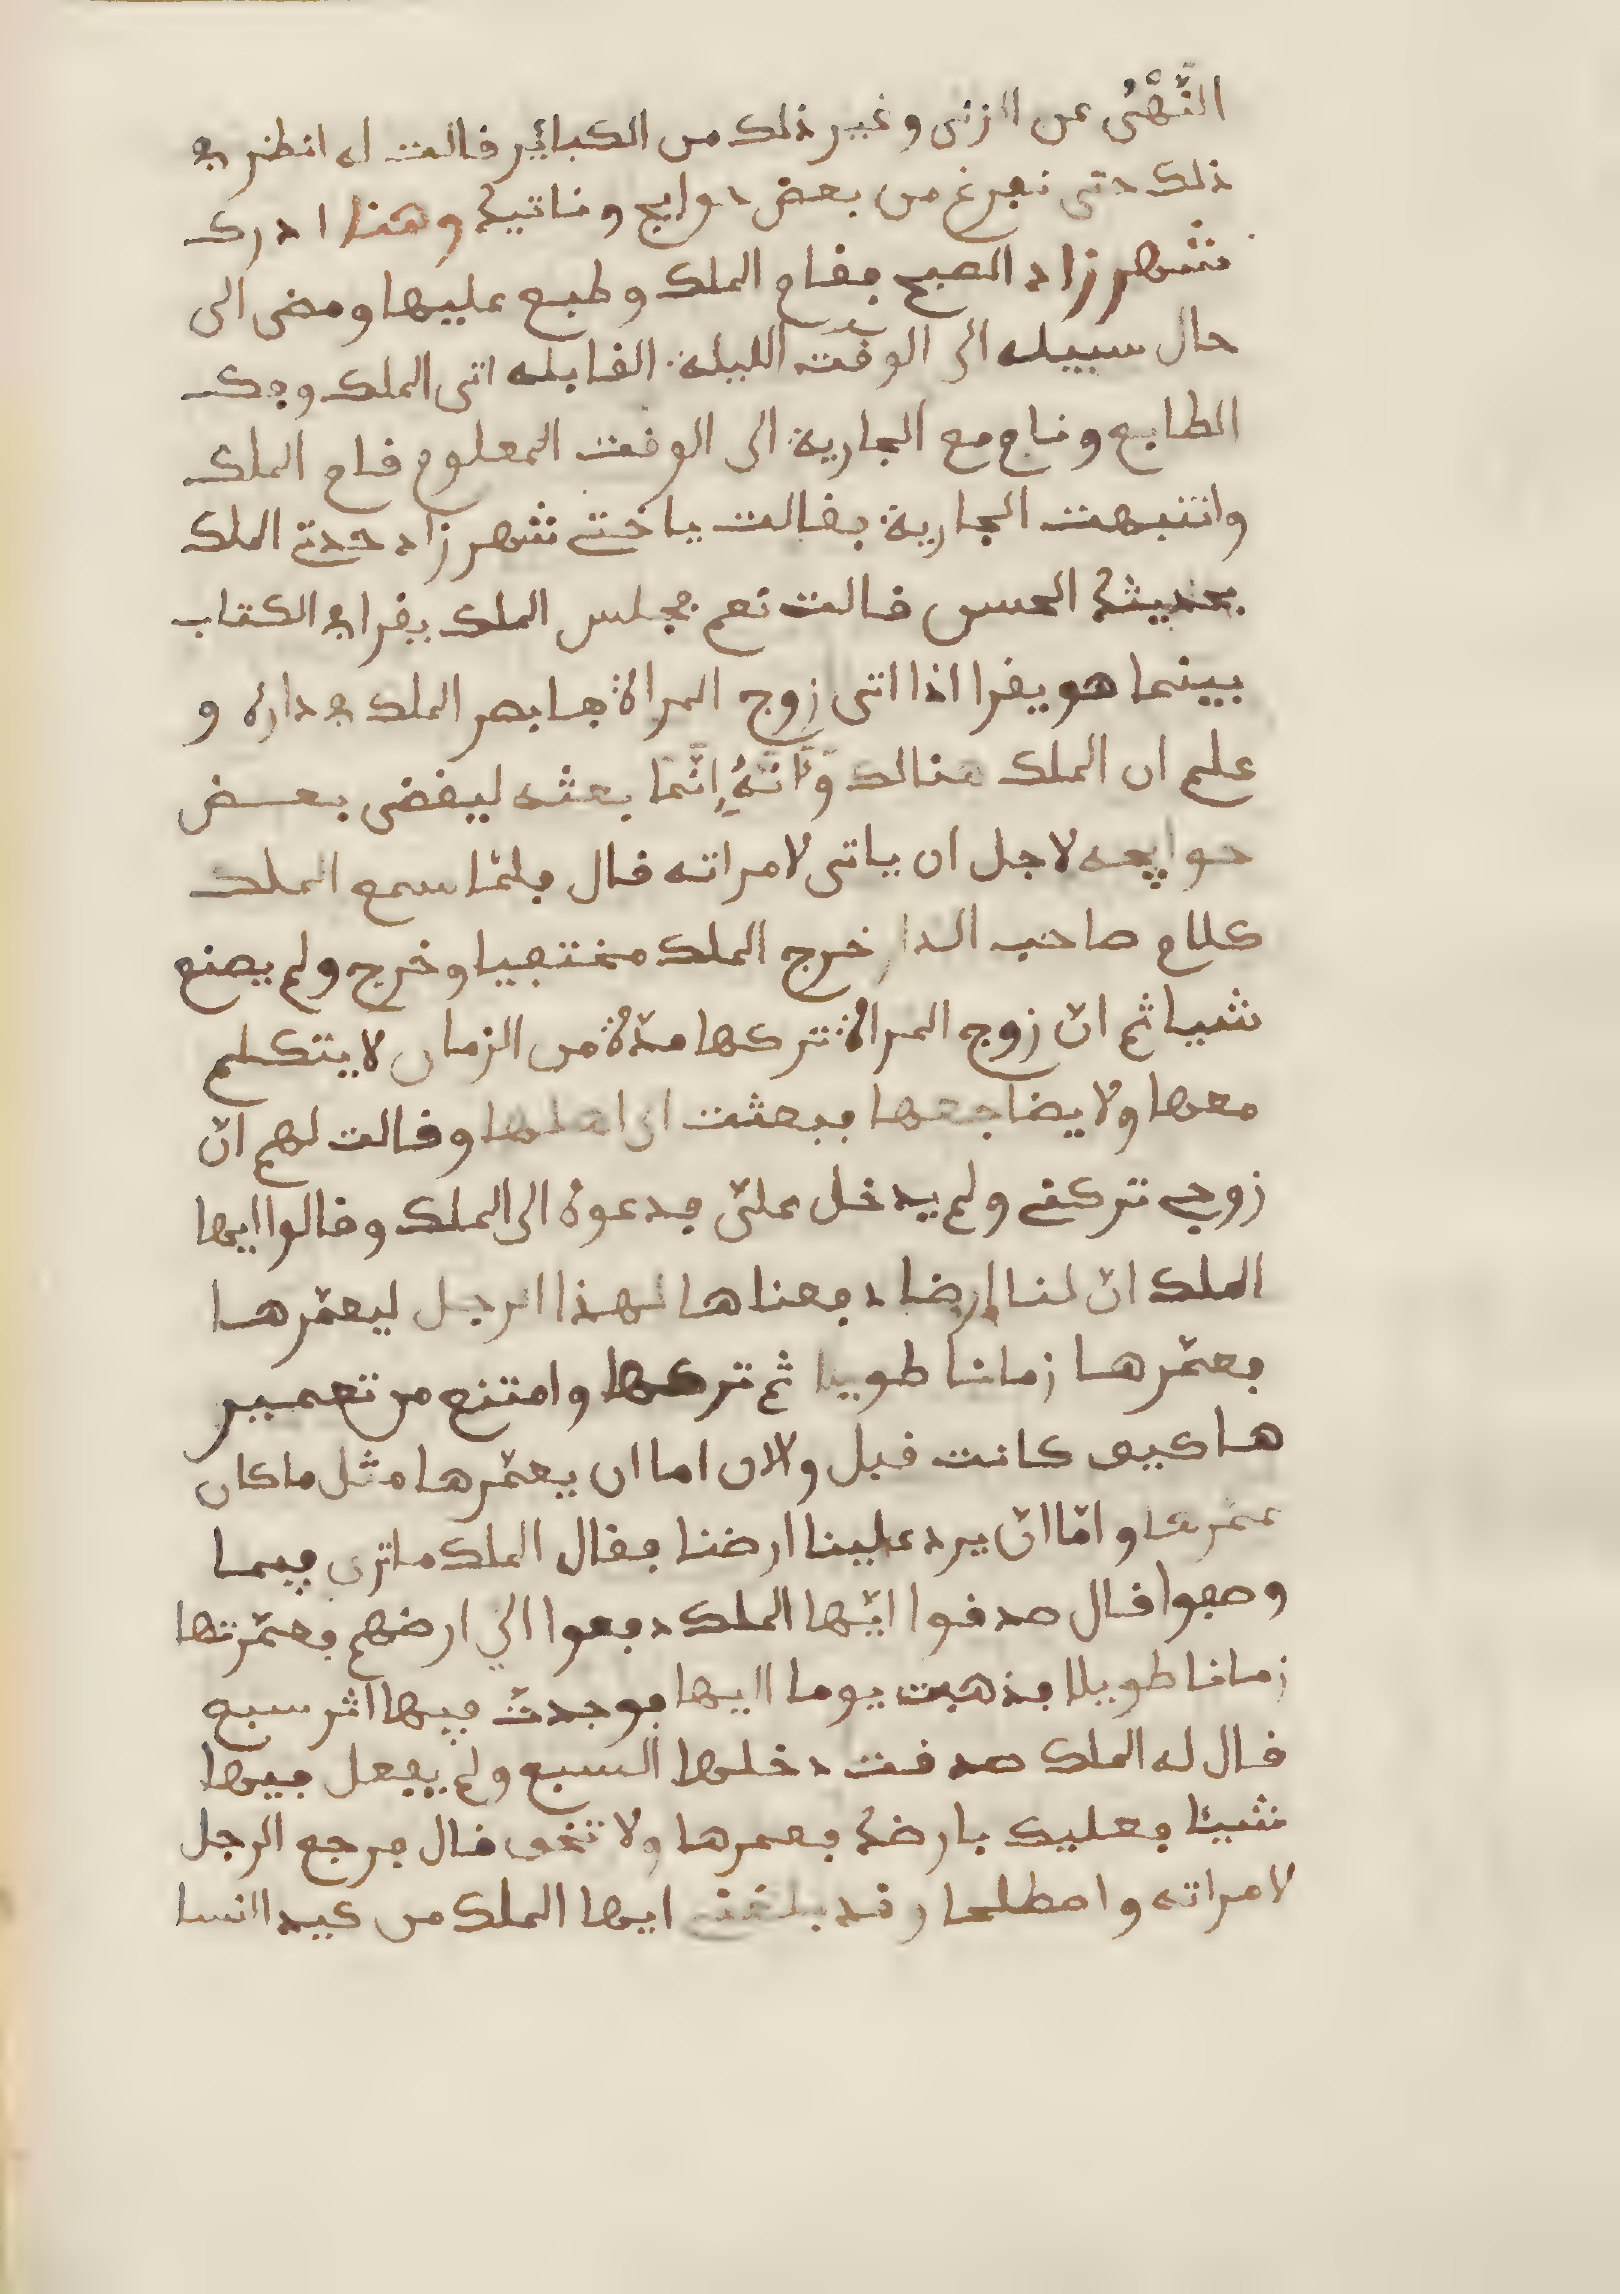 النَّهْيُ عن الزنى وغير ذلك من الكبائر فالت له انظر في
ذلك حتى نفرغ من بعض حوايج وناتيك وهنا ادرك
شهرزاد الصبح فقام الملك وطبع عليها ومضى الى
حال سبيله الى الوقت الليلة القابله اتى الملك وفك
الطابع ونام مع الجارية الى الوقت المعلوم قام الملك
وانتبهت الجارية فقالت ياختي شهرزاد حدث الملك
بحديثك الحسن قالت نعم فجلس الملك يقرا في الكتاب
بينما هو يقرا اذا اتى زوج المراة فابصر الملك في داره و
علم ان الملك هنالك وَأَنَّهُ إِنَّمَا بعثه ليقضى بعض
حوايجه لاجل ان ياتى لامراته قال فلمّا سمع الملك
كلام صاحب الدار خرج الملك مختفيا وخرج ولم يصنع
شيا ثم انّ زوج المراة تركها مدّة من الزمان لا يتكلم
معها ولا يضاجعها فبعثت الى اهلها وقالت لهم انّ
زوجي تركني ولم يدخل عليّ فدعوه الى الملك وقالوا ايها
الملك انّ لنا ارضا دفعناها لهذا الرجل ليعمّرها
فعمّرها زمانا طويلا ثم تركها وامتنع من تعمير
ها كيف كانت قبل ولان اما ان يعمّرها مثل ما كان
عمّرها وامّا انّ يرد علينا ارضنا فقال الملك ما ترى فيما
وصفوا قال صدقوا ايّها الملك دفعوا الي ارضهم فعمّرتها
زمانا طويلا فذهبت يوما اليها فوجدتّ فيها اثر سبع
قال له الملك صدقت دخلها السبع ولم يفعل فيها
شيئا فعليك بارضك فعمرها ولا تخف قال فرجع الرجل
لامراته واصطلحا وقد بلغني ايها الملك من كيد النسا